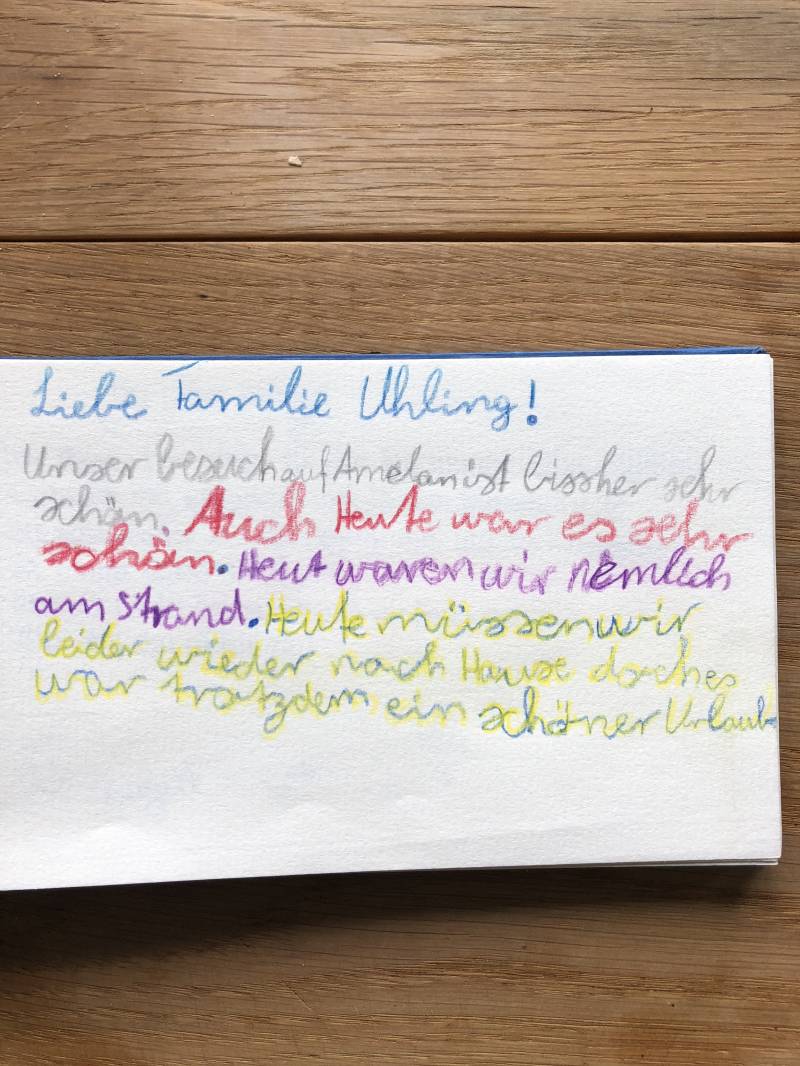 Liebe Familie Uhling!
Unser besuch auf Amelan ist bissher sehr
schön. Auch Heute war es sehr
schön. Heut waren wir nemlich
am Strand. Heute müssen wir
leider wieder nach Hause doch es
war trotzdem ein schöner Urlaub